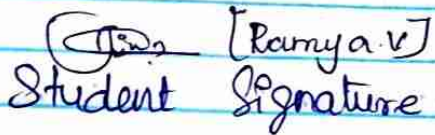 [Ramya.V]
Student Signature